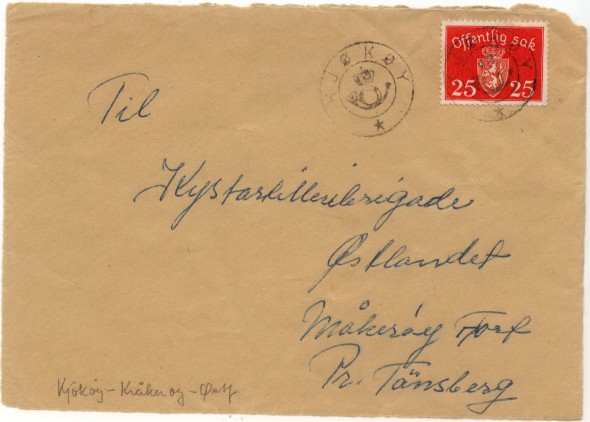 KJØKØY
Offentlig sak
25 25
Til
Kystartilleribrigade
Østlandet
Måkerøy Fort
Pr. Tønsberg
Kjøkøy - Kråkerøy - Østf